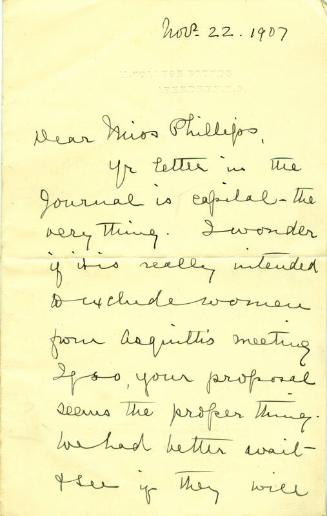 Nov. 22. 1907
Dear Miss Phillips,
Yr letter in the
Journal is capital - the
very thing. I wonder
if it is really intended
to exclude women
from Asquith's meeting
If so, your proposal
seems the proper thing.
We had better wait -
& see if they will